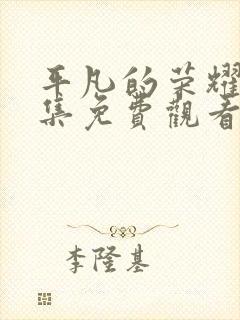 平凡的荣耀
集免費觀看
李隆基